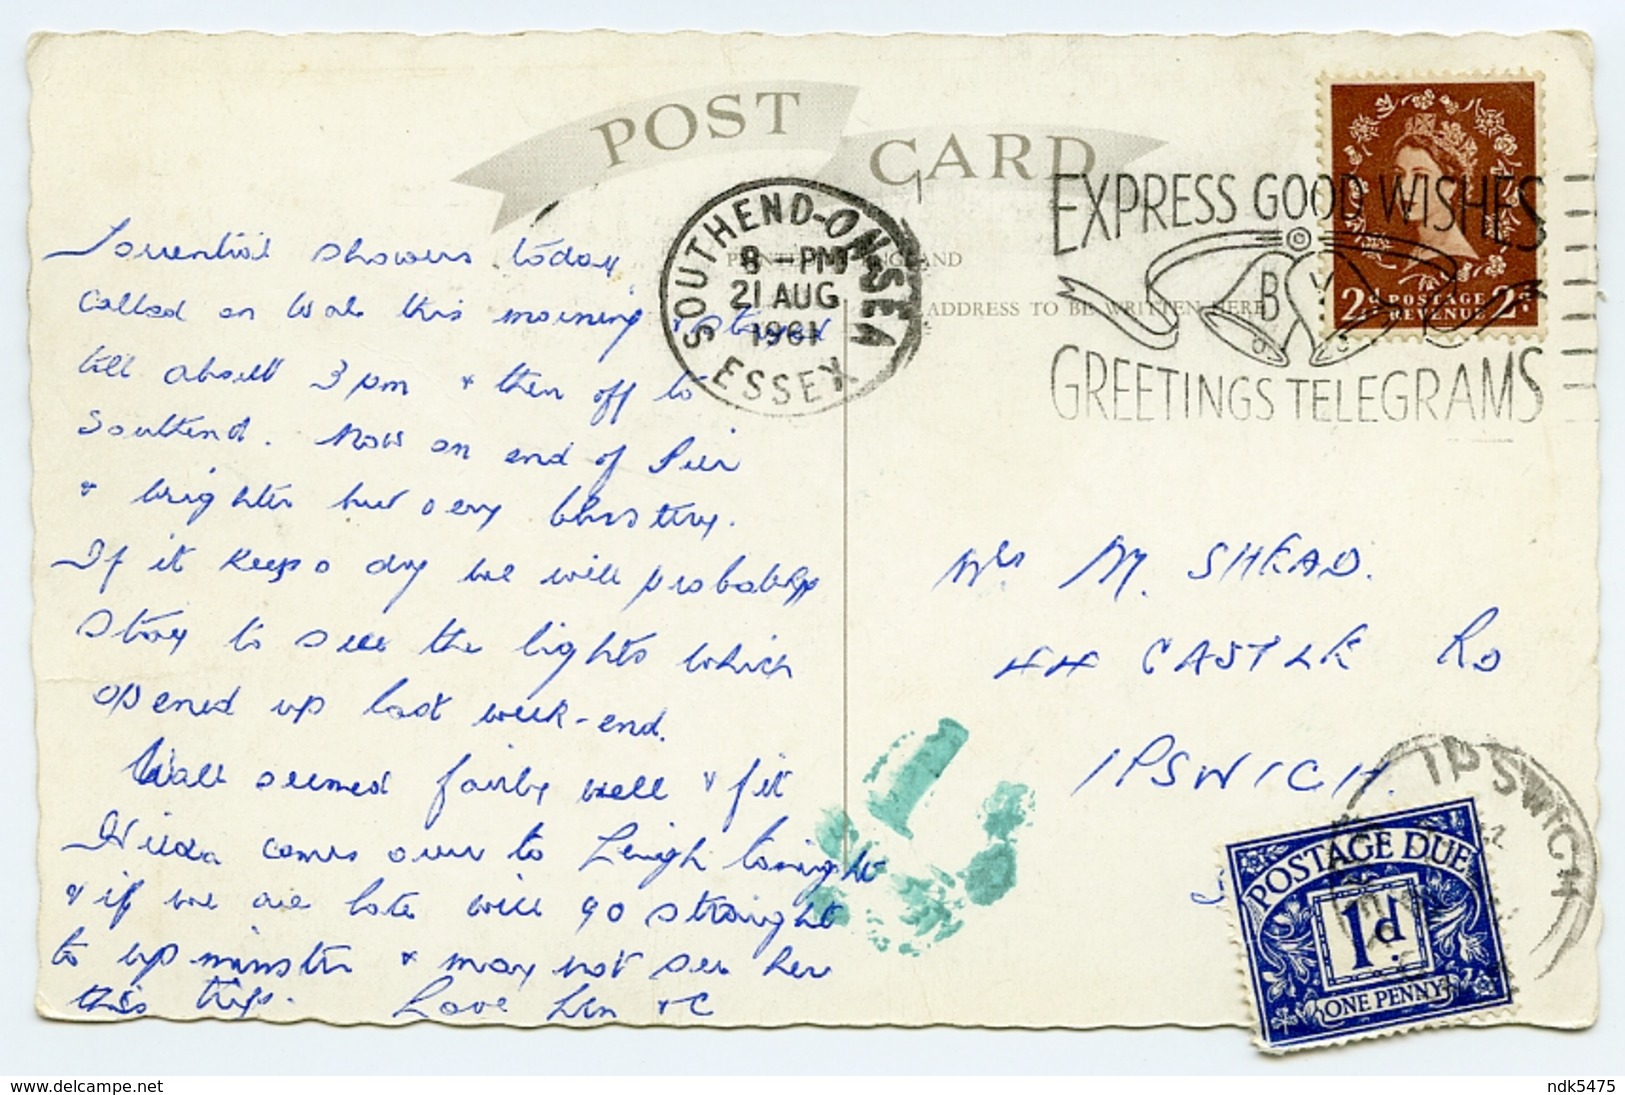 POST CARD
PRINTED IN ENGLAND
ADDRESS TO BE WRITTEN HERE
SOUTHEND-ON-SEA
8 - PM
21 AUG
1961
ESSEX
EXPRESS GOOD WISHES
BY
GREETINGS TELEGRAMS
2d POSTAGE REVENUE 2d
Torrential showers today
Called on Wal this morning & stayed
till about 3 pm & then off to
Southend. Now on end of Pier
& brighter but very blustery.
If it keeps dry we will probably
stay to see the lights which
opened up last week-end.
Wall seemed fairly well & fit
Hilda comes over to Leigh tonight
& if we are late will go straight
to upminster & may not see her
this trip. Love Len & C
Mrs M. SHEAD.
44 CASTLE RD
IPSWICH.
IPSWICH
POSTAGE DUE
1d.
ONE PENNY
delcampe.net
ndk5475